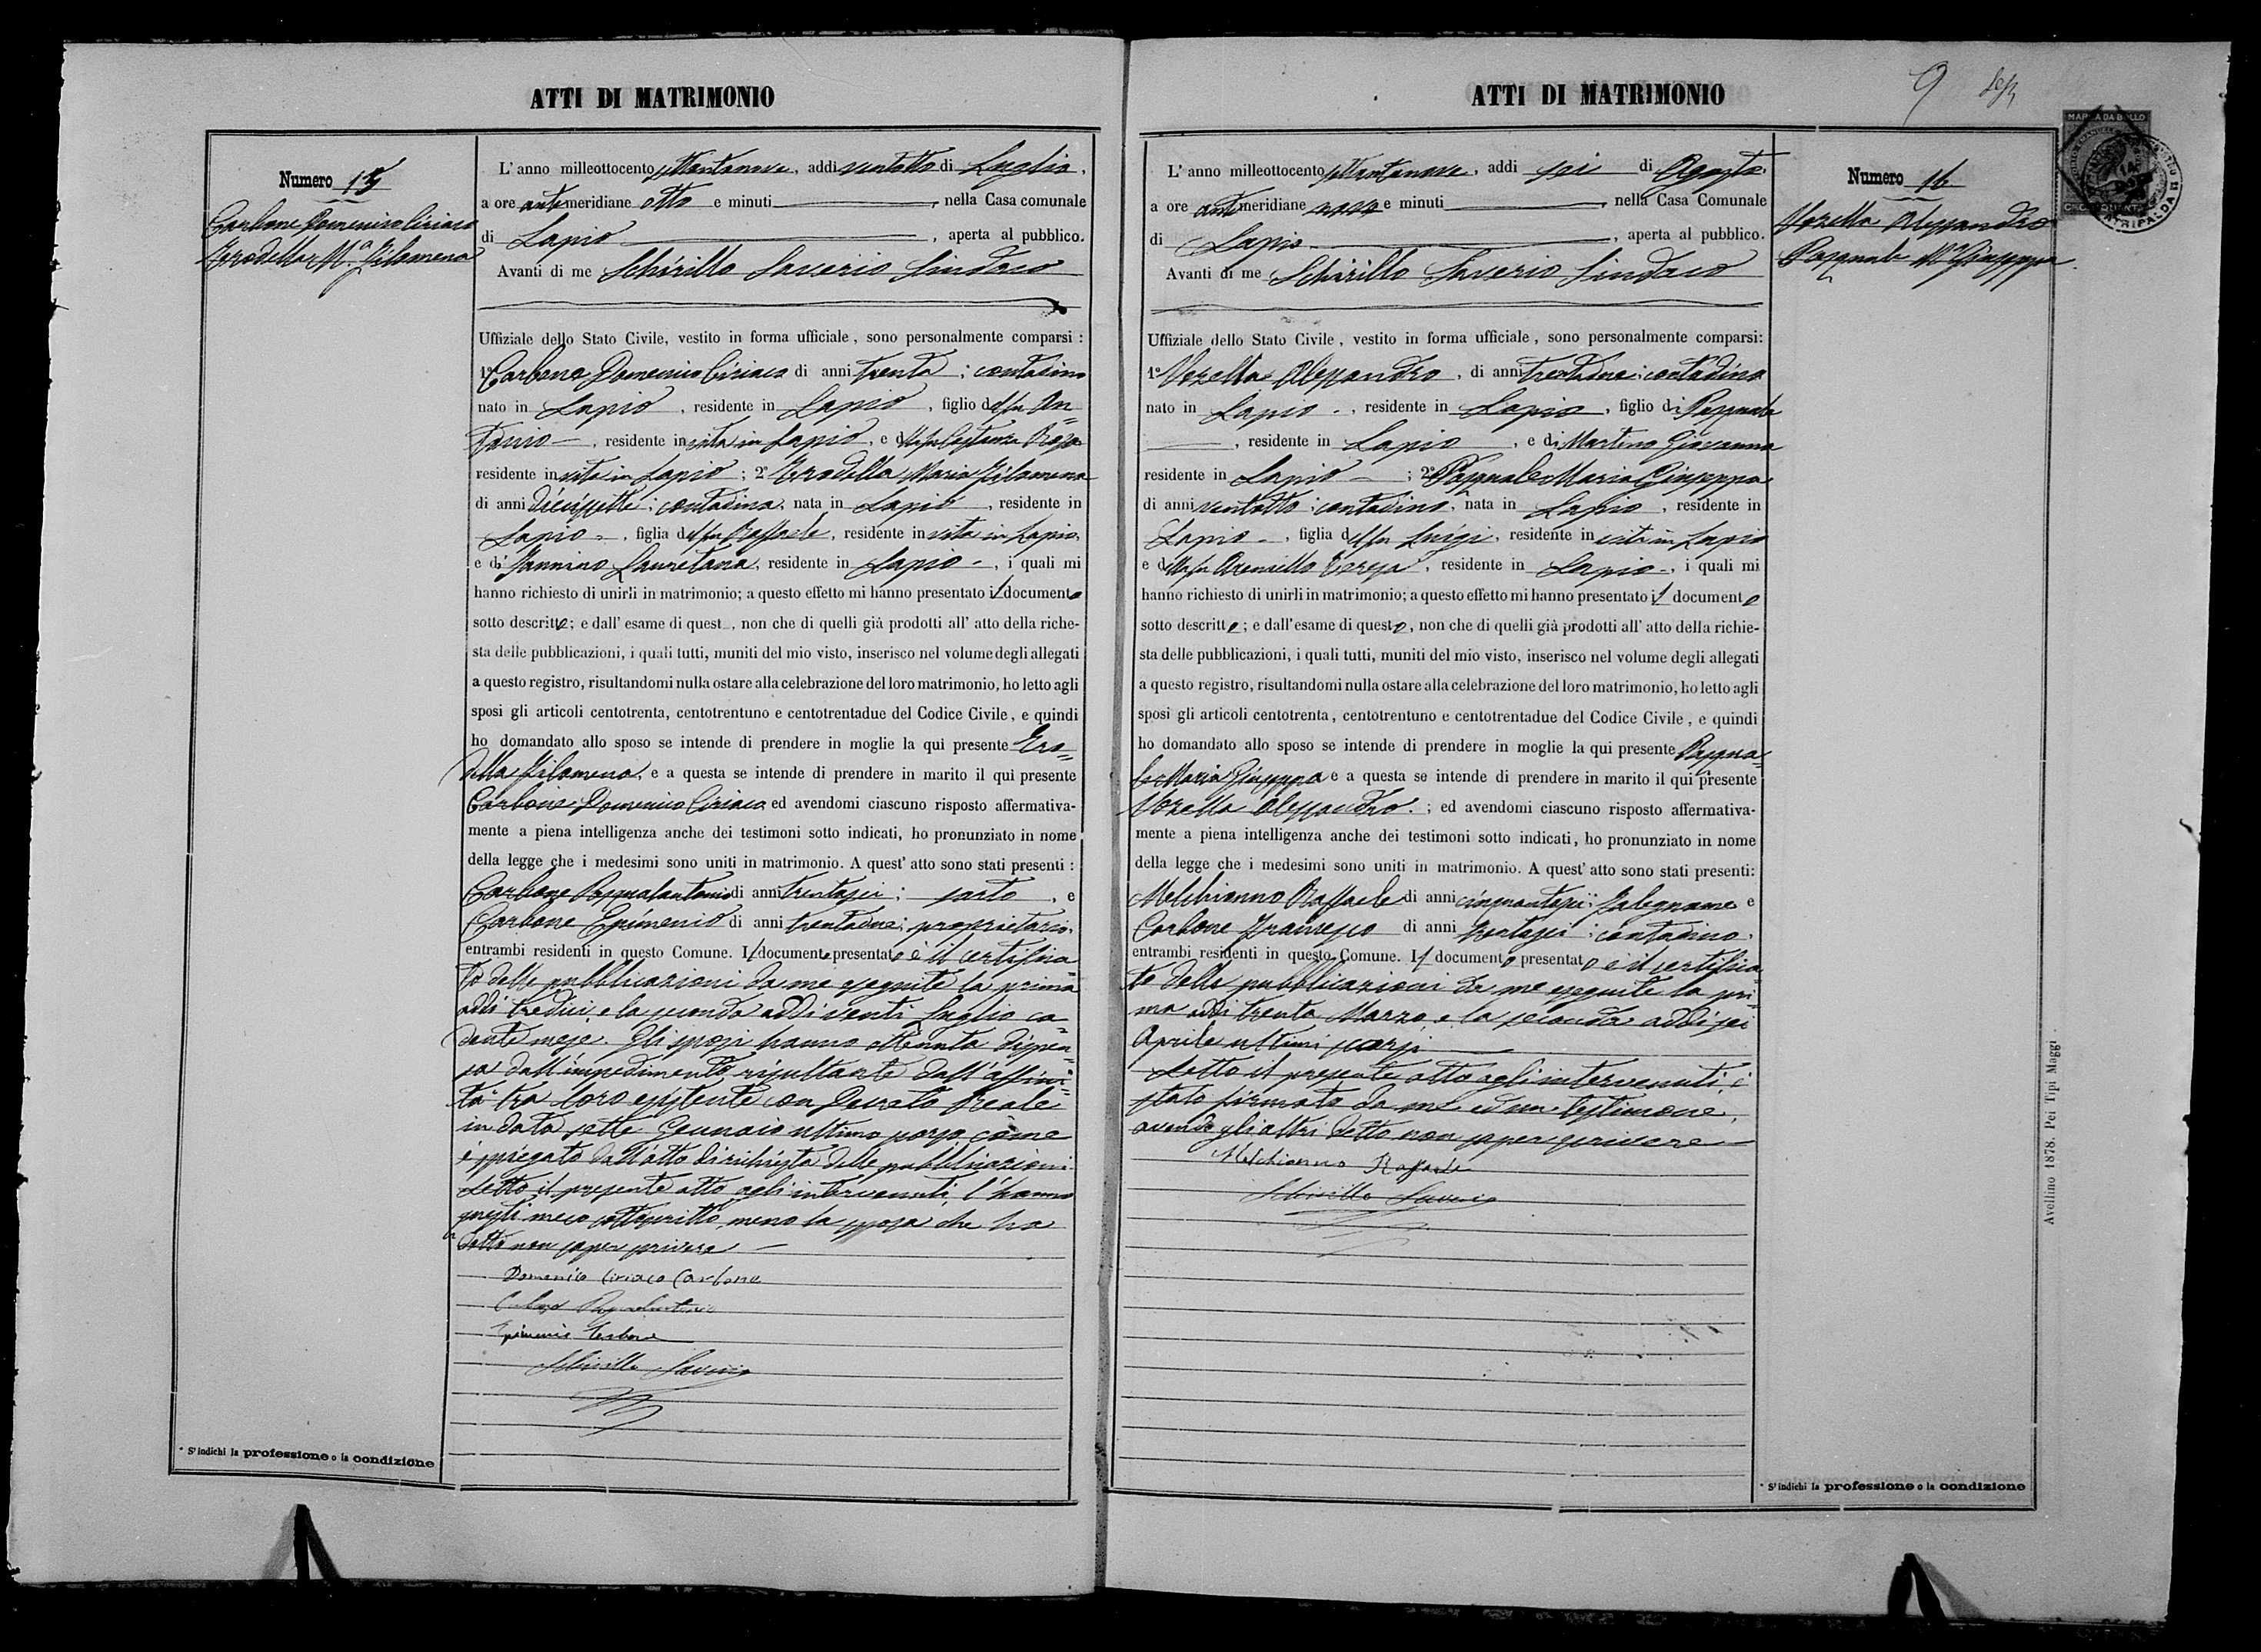 ATTI DI MATRIMONIO
Numero 15
Carbone Domenico Ciriaco
Erodella Mª Filomena
L'anno milleottocento settantanove, addi ventotto di Luglio,
a ore antimeridiane otto e minuti, nella Casa comunale
di Lapio, aperta al pubblico.
Avanti di me Schirillo Saverio Sindaco
Uffiziale dello Stato Civile, vestito in forma ufficiale, sono personalmente comparsi:
1º Carbone Domenico Ciriaco di anni trenta; contadino
nato in Lapio, residente in Lapio, figlio del fu An=
tonio, residente in vita in Lapio, e della fu Costanza Rosa
residente in vita in Lapio; 2º Erodella Maria Filomena
di anni diciassette; contadina, nata in Lapio, residente in
Lapio, figlia del fu Raffaele, residente in vita in Lapio,
e di Jannino Lauretana, residente in Lapio, i quali mi
hanno richiesto di unirli in matrimonio; a questo effetto mi hanno presentato il documento
sotto descritto; e dall'esame di quest, non che di quelli già prodotti all'atto della riche-
sta delle pubblicazioni, i quali tutti, muniti del mio visto, inserisco nel volume degli allegati
a questo registro, risultandomi nulla ostare alla celebrazione del loro matrimonio, ho letto agli
sposi gli articoli centotrenta, centotrentuno e centotrentadue del Codice Civile, e quindi
ho domandato allo sposo se intende di prendere in moglie la qui presente Ero=
della Filomena, e a questa se intende di prendere in marito il qui presente
Carbone Domenico Ciriaco ed avendomi ciascuno risposto affermativa-
mente a piena intelligenza anche dei testimoni sotto indicati, ho pronunziato in nome
della legge che i medesimi sono uniti in matrimonio. A quest'atto sono stati presenti:
Carbone Pasqualantonio di anni trentasei; sarto, e
Carbone Epimenio di anni trentadue; proprietario,
entrambi residenti in questo Comune. Il documento presentato è il certifica=
to delle pubblicazioni da me eseguite la prima
addì tredici, e la seconda addì venti Luglio ca=
dente mese. Gli sposi hanno ottenuta dispen=
sa dall'impedimento risultante dall'affini=
tà tra loro esistente con Decreto Reale
in data sette Gennaio ultimo scorso come
è spiegato dall'atto di richiesta delle pubblicazioni.
Letto il presente atto agli intervenuti l'hanno
questi meco sottoscritto, meno la sposa che ha
detto non saper scrivere
Domenico Ciriaco Carbone
Carbone Pasqualantonio
Epimenio Carbone
Schirillo Saverio
* S'indichi la professione o la condizione
ATTI DI MATRIMONIO
9
MARCA DA BOLLO
ATRIPALDA
Numero 16
Vozella Alessandro
Pasquale Mª Giuseppa
L'anno milleottocento settantanove, addi sei di Agosto,
a ore antimeridiane nove e minuti, nella Casa Comunale
di Lapio, aperta al pubblico.
Avanti di me Schirillo Saverio Sindaco
Uffiziale dello Stato Civile, vestito in forma ufficiale, sono personalmente comparsi:
1º Vozella Alessandro, di anni trentadue; contadino
nato in Lapio, residente in Lapio, figlio di Pasquale
, residente in Lapio, e di Martino Giovanna
residente in Lapio; 2º Pasquale Maria Giuseppa
di anni ventotto; contadina, nata in Lapio, residente in
Lapio, figlia del fu Luigi, residente in vita in Lapio
e della fu Teresa, residente in Lapio, i quali mi
hanno richiesto di unirli in matrimonio; a questo effetto mi hanno presentato il documento
sotto descritto; e dall'esame di questo, non che di quelli già prodotti all'atto della richie-
sta delle pubblicazioni, i quali tutti, muniti del mio visto, inserisco nel volume degli allegati
a questo registro, risultandomi nulla ostare alla celebrazione del loro matrimonio, ho letto agli
sposi gli articoli centotrenta, centotrentuno e centotrentadue del Codice Civile, e quindi
ho domandato allo sposo se intende di prendere in moglie la qui presente Pasqua=
le Maria Giuseppa e a questa se intende di prendere in marito il qui presente
Vozella Alessandro; ed avendomi ciascuno risposto affermativa-
mente a piena intelligenza anche dei testimoni sotto indicati, ho pronunziato in nome
della legge che i medesimi sono uniti in matrimonio. A quest'atto sono stati presenti:
Melchionno Raffaele di anni cinquantasei; falegname e
Carbone Francesco di anni trentasei; contadino,
entrambi residenti in questo Comune. Il documento presentato è il certifica=
to delle pubblicazioni da me eseguite la pri=
ma addì trenta Marzo, e la seconda addì sei
Aprile ultimi scorsi
Letto il presente atto agli intervenuti è
stato firmato da me ed un testimone,
avendo gli altri detto non saper scrivere
Melchionno Raffaele
Schirillo Saverio
* S'indichi la professione o la condizione
Avellino 1878. Pei Tipi Maggi.